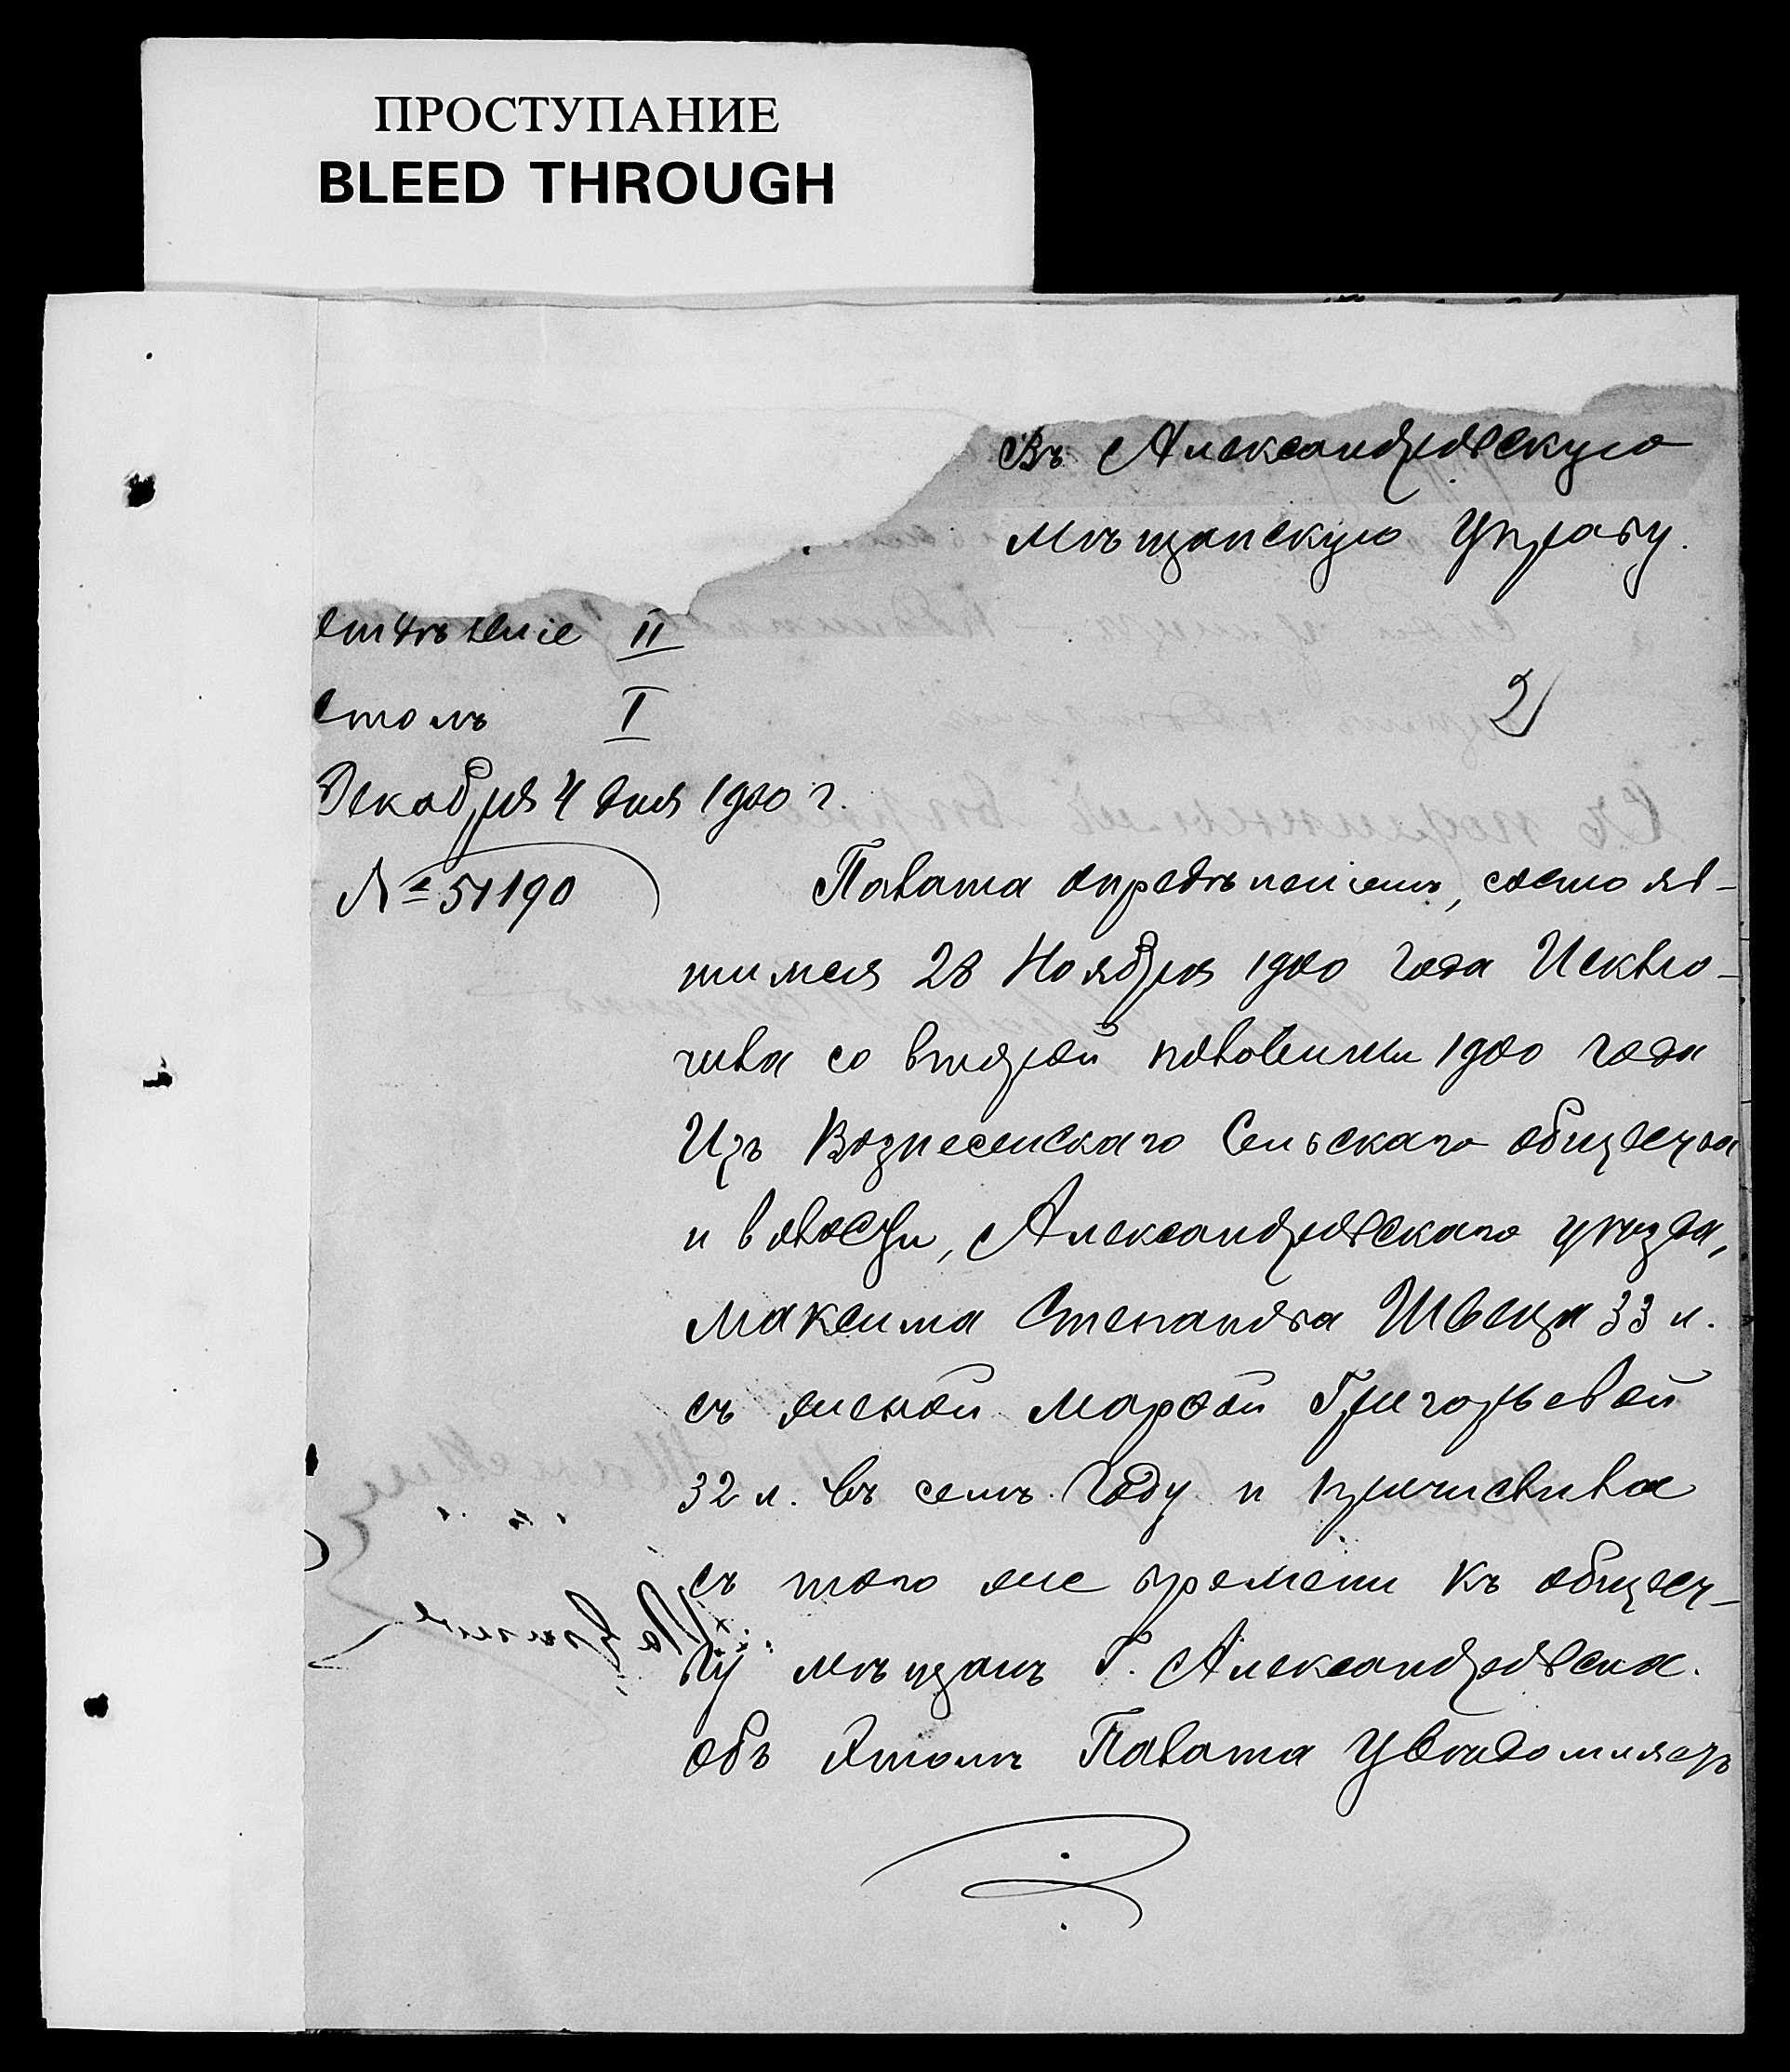 ПРОСТУПАНИЕ
BLEED THROUGH
Въ Александровскую
Мѣщанскую Управу.
Отдѣленіе II
Столъ I
2
Декабря 4 дня 1900 г.
№ 51190
Палата опредѣленіемъ, состояв-
шимся 28 Ноября 1900 года Исклю-
чила со второй половины 1900 года
Изъ Вознесенскаго Сельскаго общества
и волости, Александровскаго уѣзда,
Максима Степанова Швеца 33 л.
съ женой Марфой Григорьевой
32 л. въ семъ году и причислила
съ того же времени къ общест-
ву мѣщанъ Г. Александровска.
Объ этомъ Палата увѣдомляетъ